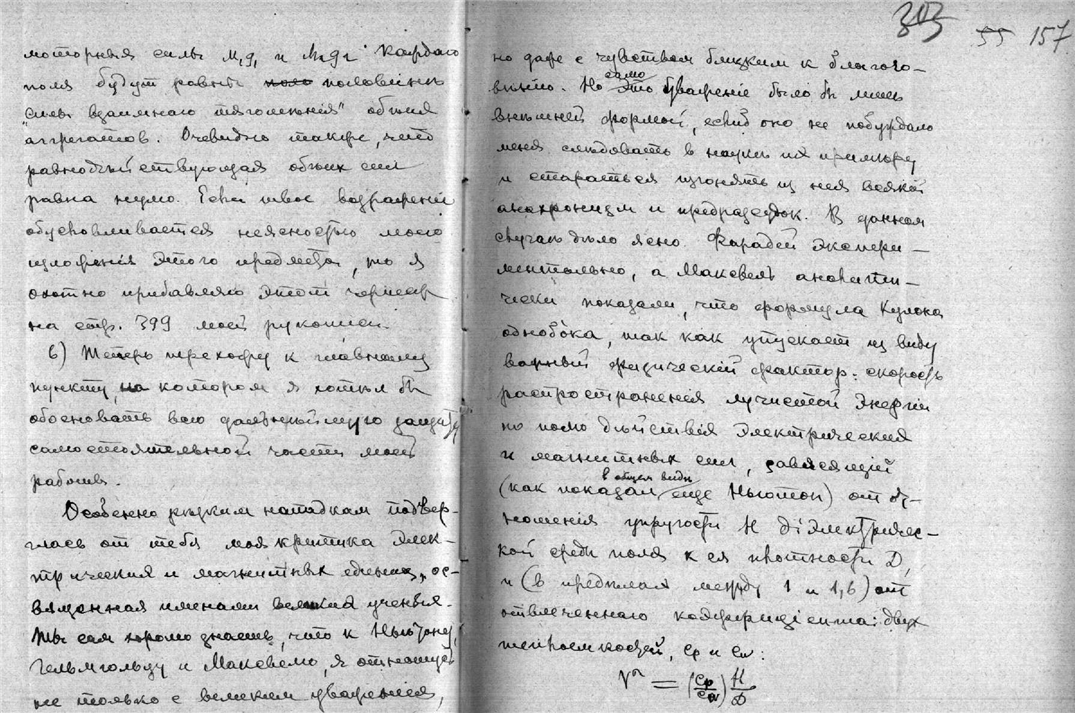 моторныя силы M,g, и M₂g₂ каждаго
поля будут равны половинѣ
"силы взаимнаго тяготѣнія" обоих
аггрегатов. Очевидно также, что
равнодѣйствующая обѣих сил
равна нулю. Если твое возраженіе
обусловливается неясностью моего
изложенія этого предмета, то я
охотно прибавляю этот чертеж
на стр. 399 моей рукописи.
6) Теперь перехожу к главному
пункту, на котором я хотѣл бы
обосновать всю дальнѣйшую защиту
самостоятельной части моей
работы.
Особенно рѣзким нападкам подвер-
глась от тебя моя критика элек-
трических и магнитных единиц, ос-
вященная именами великих ученых.
Ты сам хорошо знаешь, что к Ньютону,
Гельмгольцу и Максвелю, я отношусь
не только с великим уваженіем,
303 55 157
но даже с чувством близким к благого-
вѣнію. Но само это уваженіе было бы лишь
внѣшней формой, если б оно не побуждало
меня слѣдовать в наукѣ их примѣру
и стараться изгонять из нея всякій
анахронизм и предразсудок. В данном
случаѣ дѣло ясно. Фарадей экспери-
ментально, а Максвель аналити-
чески показали, что формула Кулона
однобока, так как упускает из виду
важный физическій фактор: скорость
распространенія лучистой энергіи
по полю дѣйствія электрических
и магнитных сил, зависящій
(как показал в общем видѣ еще Ньютон) от от-
ношенія упругости H діэлектричес-
кой среды поля к ея плотности D,
и (в предѣлах между 1 и 1,6) от
отвлеченнаго коэффиціента: двух
теплоемкостей, Cp и Cv:
V² = (Cp/Cv) H/D